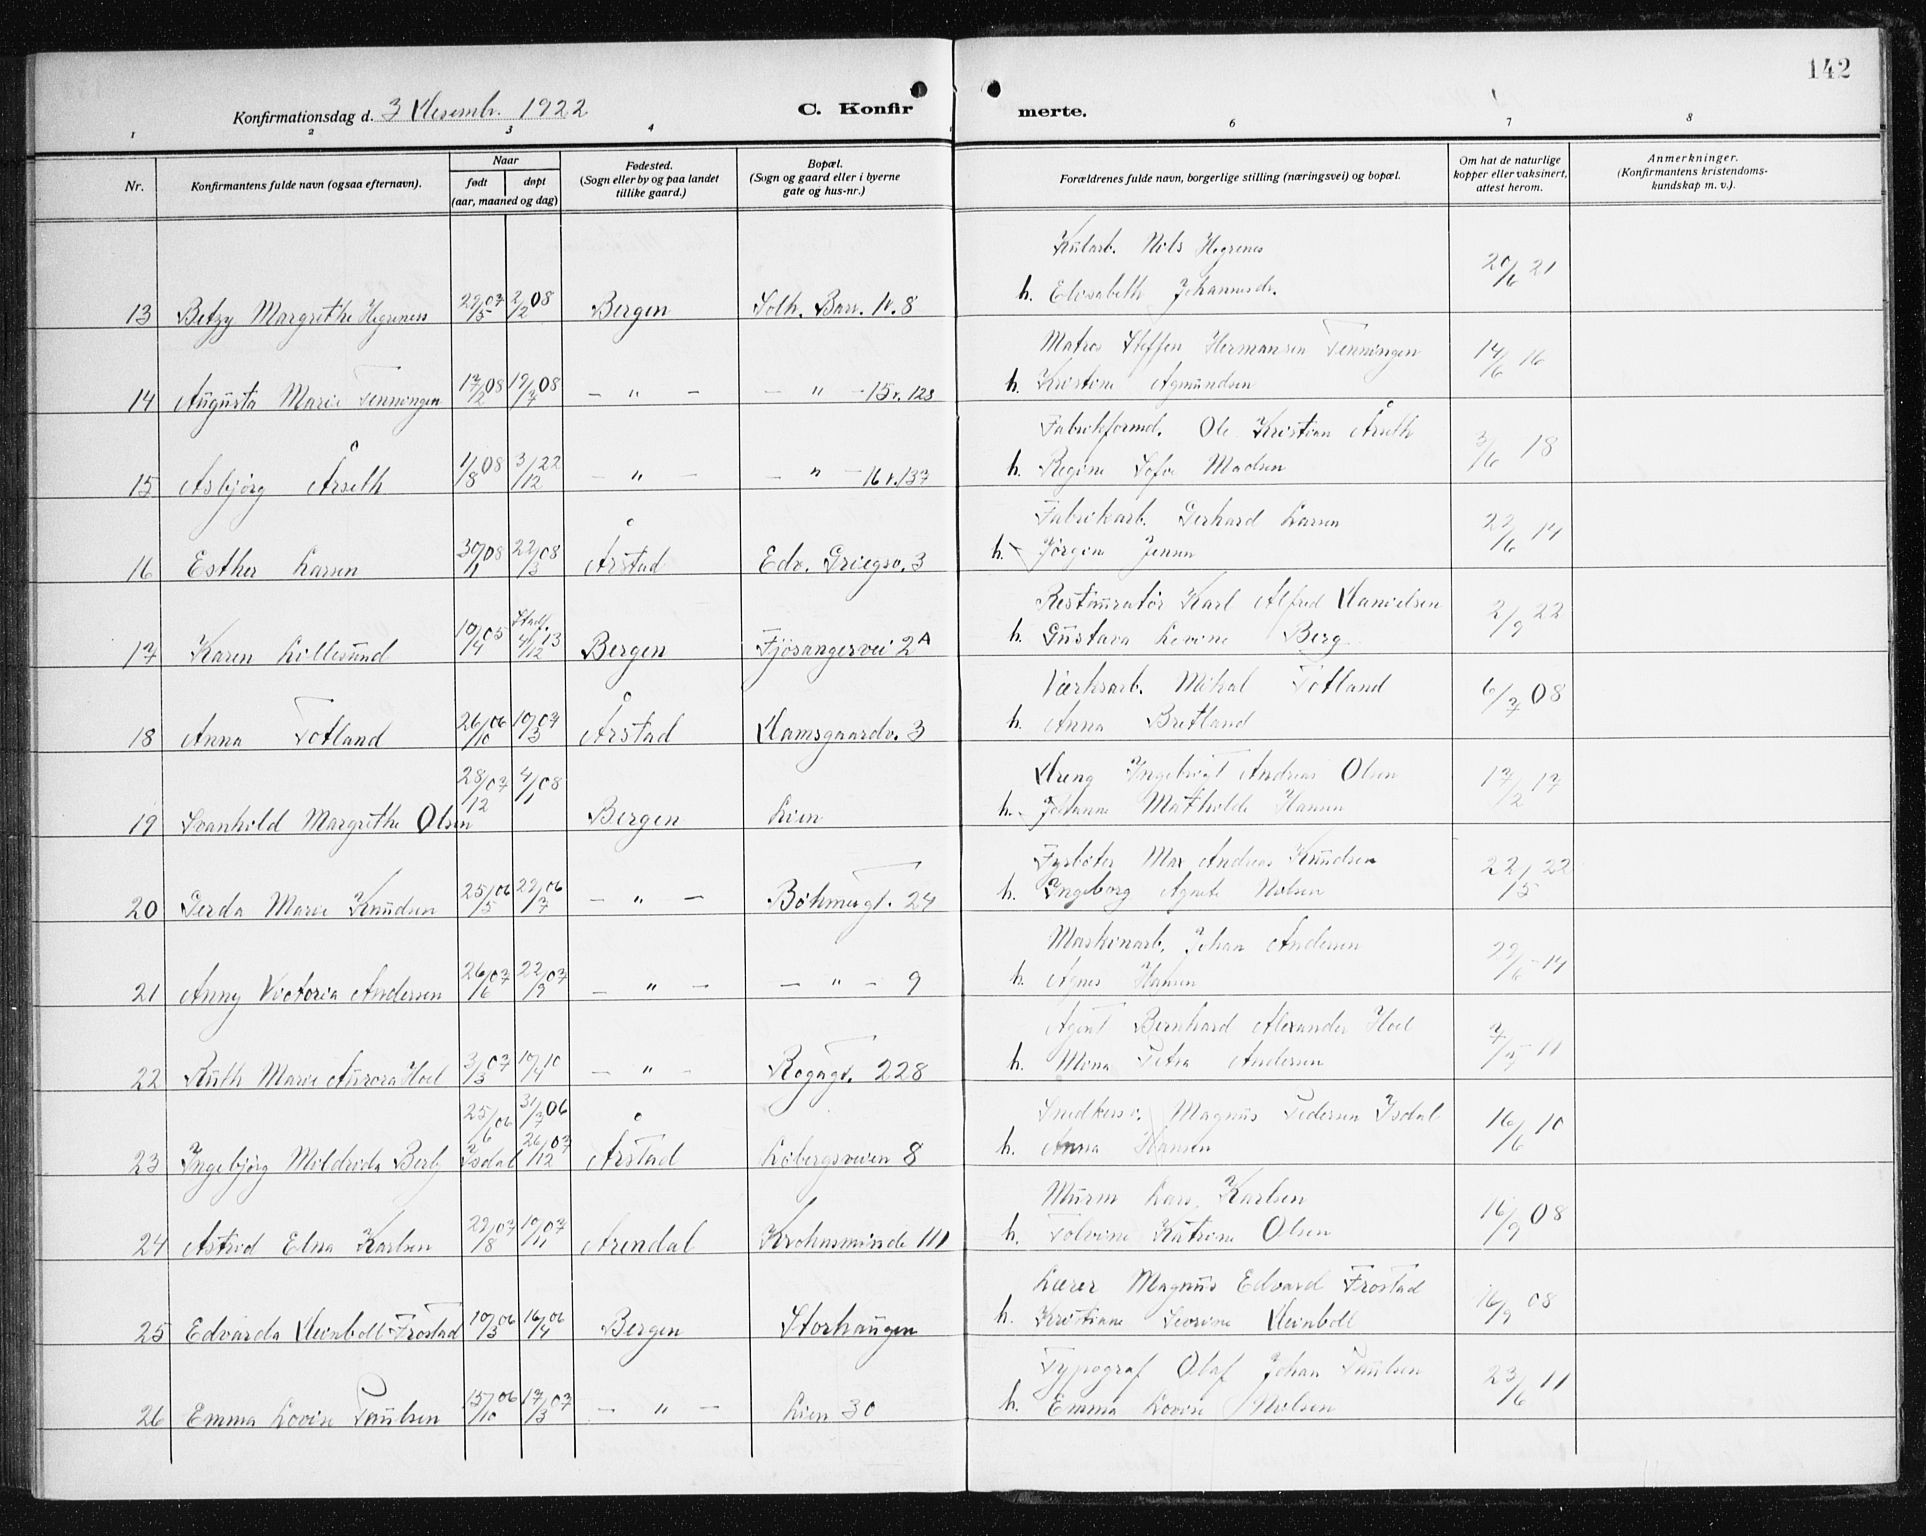 142
Konfirmationsdag d. 3 Desembr. 1922 C. Konfir merte.
1 2 3 4 6 7 8
Nr. Konfirmantens fulde navn (ogsaa efternavn). Naar født døpt (aar, maaned og dag) Fødested. (Sogn eller by og paa landet tillike gaard.) Bopæl. (Sogn og gaard eller i byerne gate og hus-nr.) Forældrenes fulde navn, borgerlige stilling (næringsvei) og bopæl. Om hat de naturlige kopper eller vaksinert, attest herom. Anmerkninger. (Konfirmantens kristendomskundskap m. v.).
Kularb. Nils Hegrenes
13 Betzy Margrethe Hegrenes 29/5 07 2/2 08 Bergen Solh. Barr. 10.8 h. Elisabeth Johannesdr. 20/6 21
Matros Steffen Hermansen Tenningen
14 Augusta Marie Tenningen 17/2 08 19/7 08 — " — — " — 15 v. 128 h. Kristine Agmundsen 14/6 16
Fabrikformd. Ole Kristian Årseth
15 Asbjørg Årseth 4/8 08 3/12 22 — " — — " — 16 v. 137 h. Regine Sofie Madsen 3/6 18
Fabrikarb. Gerhard Larsen
16 Esther Larsen 30/1 08 22/3 08 Årstad Edv. Griegsv. 3 h. Jørgine Jensen 22/6 14
Restauratør Karl Alfred Danielsen
17 Karen Lillesund 10/4 05 Stadf. 4/12 13 Bergen Fjøsangervei 2A h. Gustava Lovine Berg 2/9 22
Værksarb. Mikal Totland
18 Anna Totland 26/10 06 10/3 07 Årstad Damsgaardv. 3 h. Anna Bretland 6/7 08
Dreng Ingebrigt Andreas Olsen
19 Svanhild Margrethe Olsen 28/12 07 4/1 08 Bergen Lien h. Johanne Mathilde Hansen 17/2 17
Fyrbøter Max Andreas Knudsen
20 Gerda Marie Knudsen 25/5 06 22/7 06 — " — Bøhmergt. 24 h. Ingeborg Agnete Nilsen 22/5 22
Maskinarb. Johan Andersen
21 Anny Victoria Andersen 26/6 07 22/9 07 — " — — " — 9 h. Agnes Hansen 23/6 14
Agent Bernhard Alexander Hoel
22 Ruth Marie Aurora Hoel 3/3 07 10/4 10 — " — Rogagt. 228 h. Mina Petra Andersen 7/5 11
Snedkersv. Magnus Pedersen Isdal
23 Ingebjørg Mildrida Berby Isdal 25/6 06 31/7 06 26/12 07 Årstad Løbergsveien 8 h. Anna Hansen 16/6 10
Murm Lars Karlsen
24 Astrid Elna Karlsen 29/8 07 10/11 07 Arendal Krohnsminde 111 h. Tolvine Katrine Olsen 16/9 08
Lærer Magnus Edvard Frostad
25 Edvarda Deinboll Frostad 10/3 06 16/4 06 Bergen Storhaugen h. Kristiane Severine Deinboll 16/9 08
Typograf Olaf Johan Paulsen
26 Emma Lovise Paulsen 15/10 06 17/3 07 — " — Lien 30 h. Emma Lovise Nilsen 23/6 11